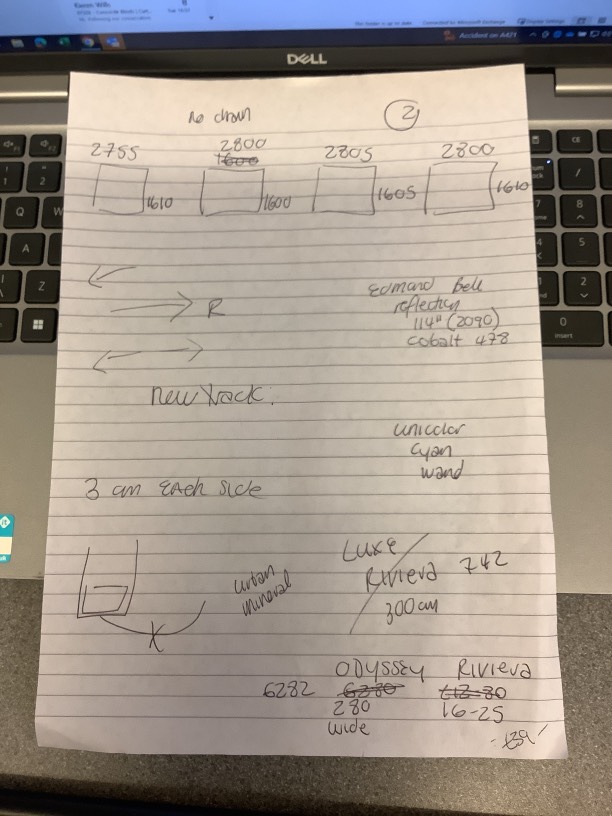 Karen Wills
Accident on A421
DELL
no drain
2
2755
2800
2805
2800
1600
1610
1600
1605
1610
R
Edmund Bell
reflection
114" (2090)
cobalt 478
new track.
unicolor
cyan
wand
3 cm each side
Luxe
Riviera 742
300cm
urban
mineral
X
ODYSSEY Riviera
6282 6280
280 16-25
wide